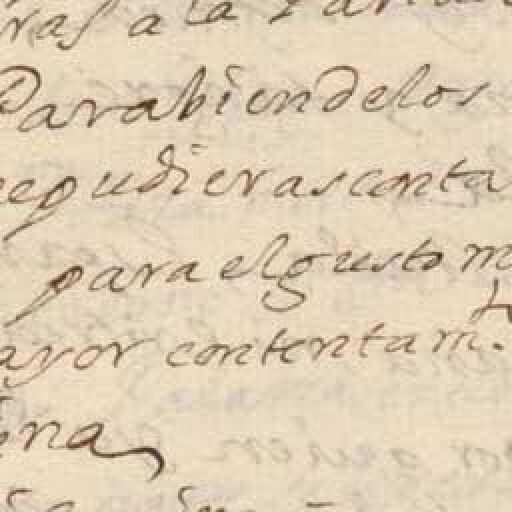 ras a la
Parabien de los
pudieras conta
para el gusto m
ayor contentam.to
ina